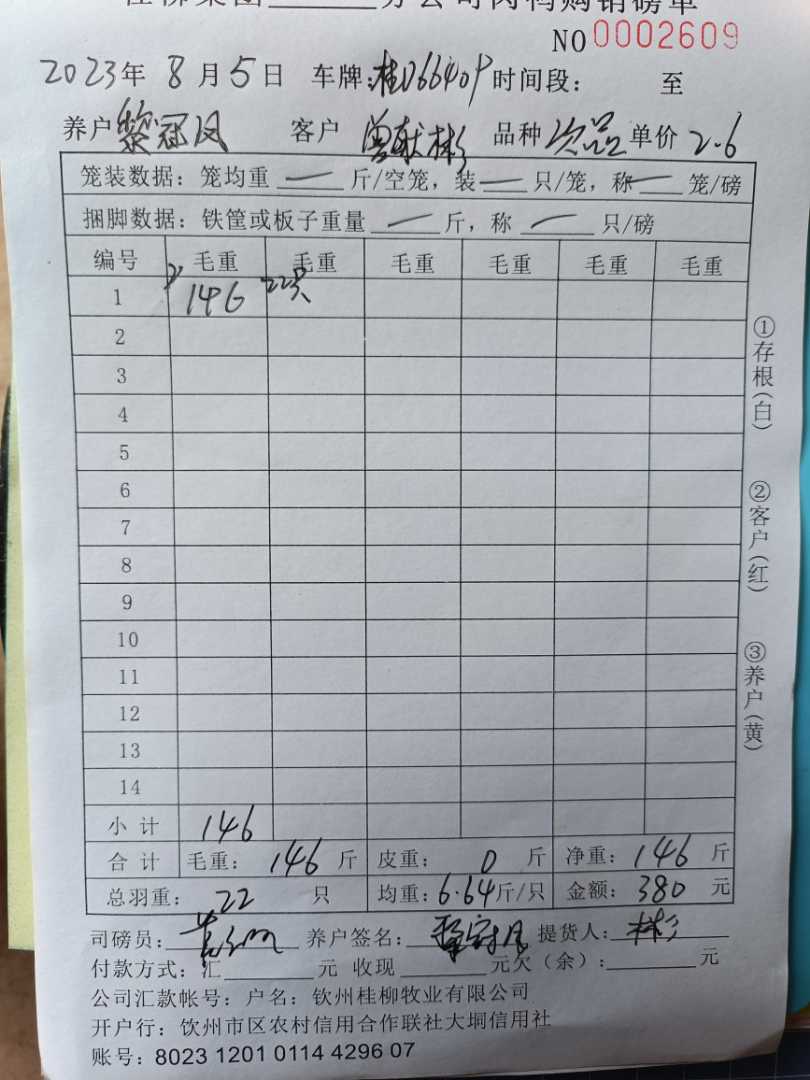 桂柳集团 分公司肉鸭购销磅单
NO 0002609
2023年 8月5日 车牌:桂D66409 时间段: 至
养户 黎冠凤 客户 曾献彬 品种 次品 单价 2.6
笼装数据: 笼均重 — 斤/空笼, 装 — 只/笼, 称 — 笼/磅
捆脚数据: 铁筐或板子重量 — 斤, 称 — 只/磅
编号 毛重 毛重 毛重 毛重 毛重 毛重
1 146 22只
2
3
4
5
6
7
8
9
10
11
12
13
14
小计 146
合计 毛重: 146 斤 皮重: 0 斤 净重: 146 斤
总羽重: 22 只 均重: 6.64斤/只 金额: 380 元
司磅员: 养户签名: 黎冠凤 提货人: 彬
付款方式: 汇 元 收现 元欠(余): 元
公司汇款帐号: 户名: 钦州桂柳牧业有限公司
开户行: 钦州市区农村信用合作联社大垌信用社
账号: 8023 1201 0114 4296 07
①存根(白)
②客户(红)
③养户(黄)